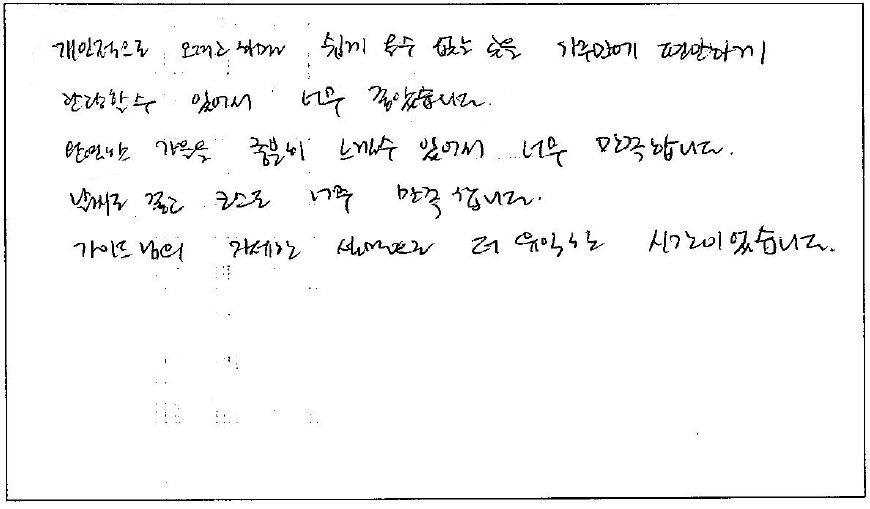 개인적으로 오려고 하면 쉽게 올수 없는 곳을 편안하게
관람할수 있어서 너무 좋았습니다.
만연한 가을을 충분히 느낄수 있어서 너무 만족합니다.
날씨도 좋고 코스도 너무 만족 합니다.
가이드님의 자세한 설명으로 더 유익한 시간이었습니다.